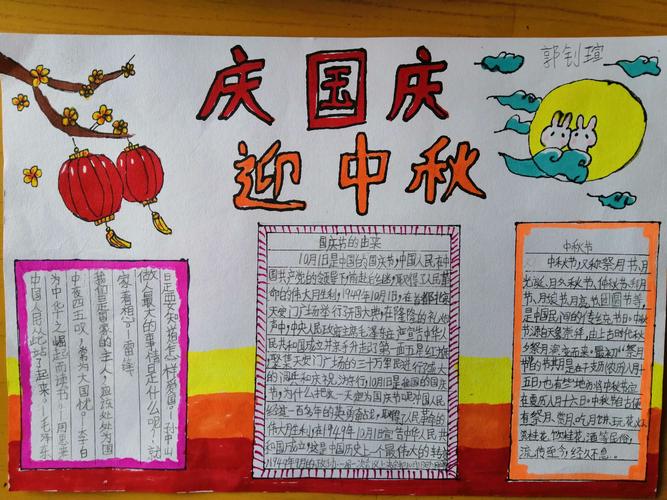 郭钊瑄
庆国庆
迎中秋
做人最大的事情是什么呢?就
是要知道怎样爱国。孙中山
家着想。雷锋
我们是国家的主人,应该处处为国
中夜四五叹,常为大国忧。李白
为中华之崛起而读书。周恩来
中国人民从此站了起来。毛泽东
国庆节的由来
10月1日是中国的国庆节,中国人民在中
国共产党的领导下,前赴后继,取得了人民革
命的伟大胜利,1949年10月1日,在首都北京
天安门广场举行了开国大典,在隆隆的礼炮
声中,中央人民政府主席毛泽东宣告中华人
民共和国成立并亲手升起了第一面五星红旗
聚集天安门广场的三十万军民进行了盛大
的阅兵和庆祝游行,10月1日是我国的国庆
节,为什么把这一天定为国庆节呢中国人民
经过一百多年的英勇奋战,取得了人民革命的
伟大胜利,在1949年10月1日宣告中华人民共
和国成立,这是中国历史上一个最伟大的转
中秋节
中秋节,又称祭月节、月
光诞、月夕、秋节、仲秋节、拜月
节、月娘节、月亮节、团圆节等,
是中国民间的传统节日,中秋节
源自天象崇拜,由上古时代秋
夕祭月演变而来。最初“祭月
节”的节期是在干支历
五日,也有些地方将中秋节定
在夏历八月十六日,中秋节自古便
有祭月、赏月、吃月饼、玩花
赏桂花、饮桂花酒等民俗,
流传至今,经久不息。